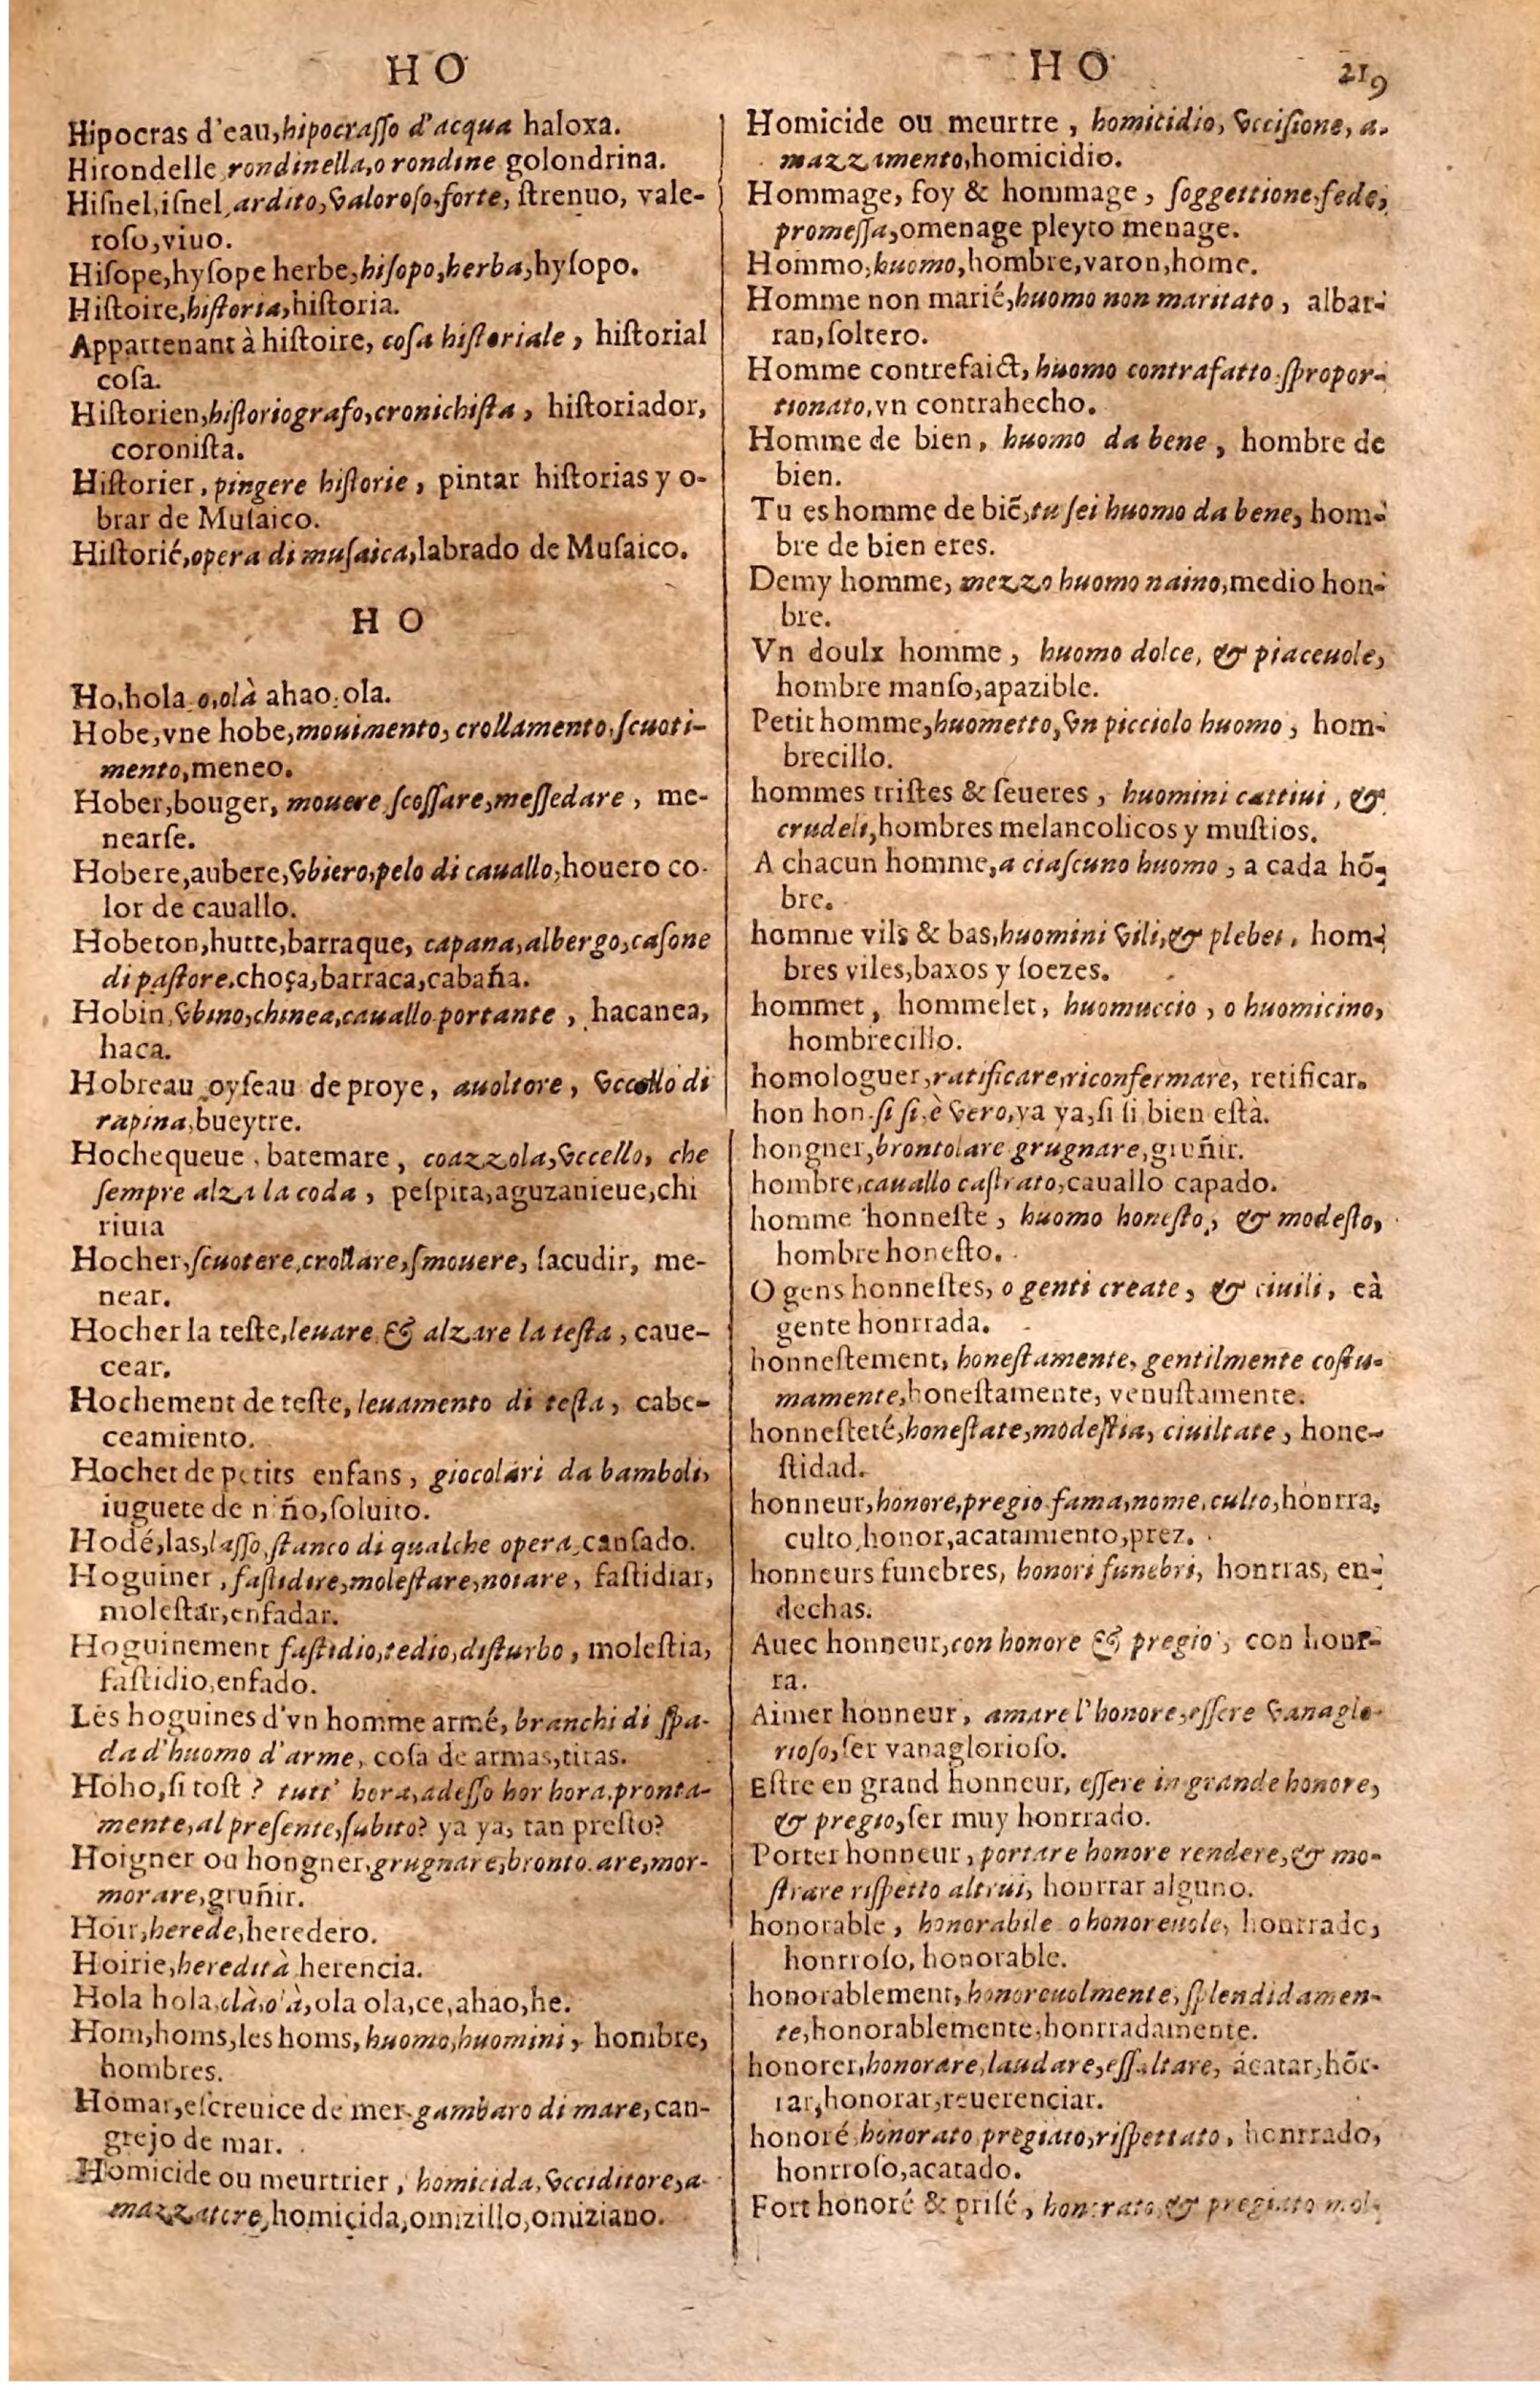 H O
Hipocras d'eau,hipocraſſo d'acqua haloxa.
Hirondelle rondinella,o rondine golondrina.
Hiſnel,iſnel,ardito,valoroſo,forte, ſtrenuo, vale-
roſo,viuo.
Hiſope,hyſope herbe,hiſopo,herba,hyſopo.
Hiſtoire,hiſtoria,hiſtoria.
Appartenant à hiſtoire, coſa hiſtoriale, hiſtorial
coſa.
Hiſtorien,hiſtoriografo,cronichiſta, hiſtoriador,
coroniſta.
Hiſtorier, pingere hiſtorie, pintar hiſtorias y o-
brar de Muſaico.
Hiſtorié,opera di muſaica,labrado de Muſaico.
H O
Ho,hola o,olà ahao,ola.
Hobe,vne hobe,mouimento, crollamento,ſcuoti-
mento,meneo.
Hober,bouger, mouere ſcoſſare,meſſedare, me-
nearſe.
Hobere,aubere,vbiero,pelo di cauallo,houero co-
lor de cauallo.
Hobeton,hutte,barraque, capana,albergo,caſone
di paſtore.choça,barraca,cabaña.
Hobin,vbino,chinea,cauallo portante, hacanea,
haca.
Hobreau oyſeau de proye, auoltore, vccello di
rapina,bueytre.
Hochequeue, batemare, coazzola,vccello, che
ſempre alza la coda, peſpita,aguzanieue,chi
riuia
Hocher,ſcuotere,crollare,ſmouere, ſacudir, me-
near.
Hocher la teſte,leuare & alzare la teſta, caue-
cear.
Hochement de teſte, leuamento di teſta, cabe-
ceamiento.
Hochet de petits enfans, giocolari da bamboli,
iuguete de niño,ſoluito.
Hodé,las,laſſo,ſtanco di qualche opera,canſado.
Hoguiner, faſtidire,moleſtare,noiare, faſtidiar,
moleſtar,enfadar.
Hoguinement faſtidio,tedio,diſturbo, moleſtia,
faſtidio,enfado.
Les hoguines d'vn homme armé, branchi di ſpa-
da d'huomo d'arme, coſa de armas,tiras.
Hoho,ſi toſt? tutt' hora,adeſſo hor hora,pronta-
mente,al preſente,ſubito? ya ya, tan preſto?
Hoigner ou hongner,grugnare,brontolare,mor-
morare,gruñir.
Hoir,herede,heredero.
Hoirie,heredità herencia.
Hola hola,olà,olà,ola ola,ce,ahao,he.
Hom,homs,les homs, huomo,huomini, hombre,
hombres.
Homar,eſcreuice de mer gambaro di mare,can-
grejo de mar.
Homicide ou meurtrier, homicida,vcciditore,a-
mazzatore,homicida,omizillo,omiziano.
H O 219
Homicide ou meurtre, homicidio, vcciſione, a-
mazzamento,homicidio.
Hommage, foy & hommage, ſoggettione,fede,
promeſſa,omenage pleyto menage.
Hommo,huomo,hombre,varon,home.
Homme non marié,huomo non maritato, albar-
ran,ſoltero.
Homme contrefaict, huomo contrafatto ſpropor-
tionato,vn contrahecho.
Homme de bien, huomo da bene, hombre de
bien.
Tu es homme de biẽ,tu ſei huomo da bene, hom-
bre de bien eres.
Demy homme, mezzo huomo naino,medio hon-
bre.
Vn doulx homme, huomo dolce, & piaceuole,
hombre manſo,apazible.
Petit homme,huometto,vn picciolo huomo, hom-
brecillo.
hommes triſtes & ſeueres, huomini cattiui, &
crudeli,hombres melancolicos y muſtios.
A chacun homme,a ciaſcuno huomo, a cada hõ-
bre.
homme vils & bas,huomini vili,& plebei, hom-
bres viles,baxos y ſoezes.
hommet, hommelet, huomuccio, o huomicino,
hombrecillo.
homologuer,ratificare,riconfermare, retificar.
hon hon ſi ſi,è vero,ya ya,ſi ſi bien eſtà.
hongner,brontolare grugnare,gruñir.
hombre,cauallo caſtrato,cauallo capado.
homme honneſte, huomo honeſto, & modeſto,
hombre honeſto.
O gens honneſtes, o genti create, & ciuili, eà
gente honrrada.
honneſtement, honeſtamente, gentilmente coſtu-
mamente,honeſtamente, venuſtamente.
honneſteté,honeſtate,modeſtia, ciuiltate, hone-
ſtidad.
honneur,honore,pregio fama,nome,culto,honrra,
culto,honor,acatamiento,prez.
honneurs funebres, honori funebri, honrras, en-
dechas.
Auec honneur,con honore & pregio, con honr-
ra.
Aimer honneur, amare l'honore,eſſere vanaglo-
rioſo,ſer vanaglorioſo.
Eſtre en grand honneur, eſſere in grande honore,
& pregio,ſer muy honrrado.
Porter honneur, portare honore rendere,& mo-
ſtrare riſpetto altrui, honrrar alguno.
honorable, honorabile o honoreuole, honrrado,
honrroſo, honorable.
honorablement,honoreuolmente,ſplendidamen-
te,honorablemente,honrradamente.
honorer,honorare,laudare,eſſaltare, acatar,hõr-
rar,honorar,reuerenciar.
honoré,honorato pregiato,riſpettato, honrrado,
honrroſo,acatado.
Fort honoré & priſé, honorato & pregiato mol-